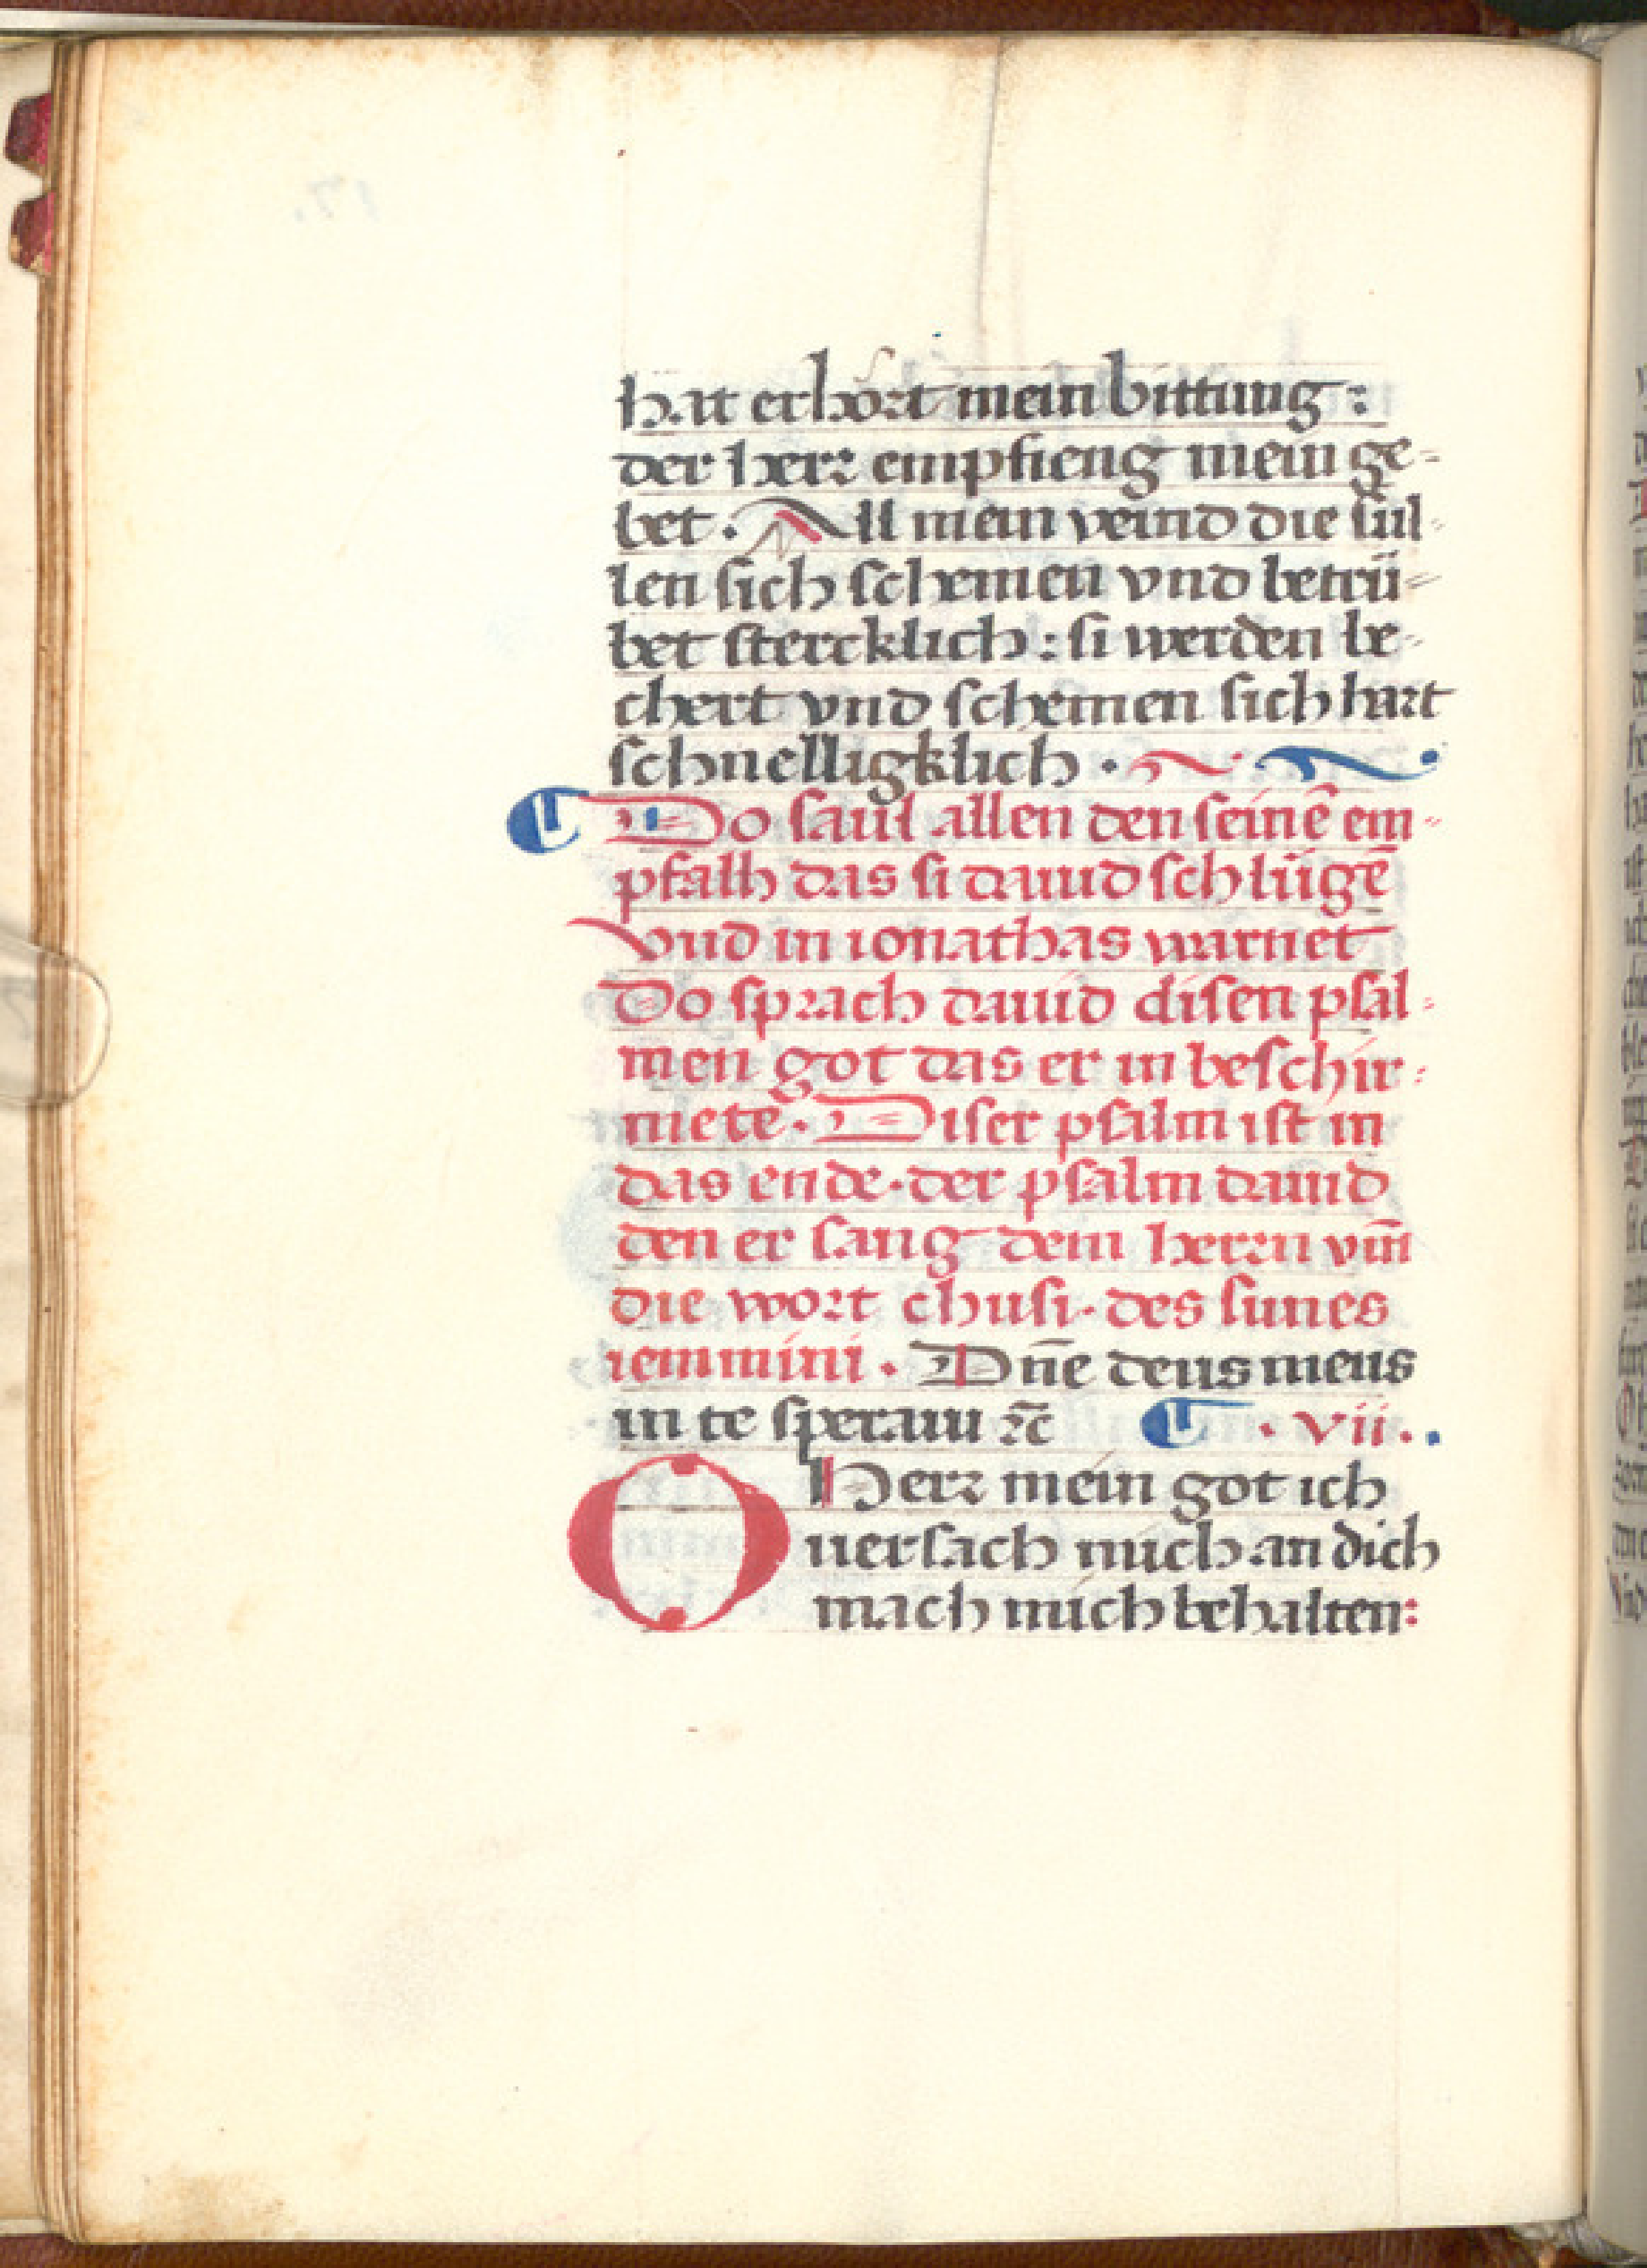 hat erhört mein bittung:
der herr empfieng mein ge-
bet. All mein veind die sül-
len sich schemen vnd betrü-
bet stercklich: si werden be-
chert vnd schemen sich hart
schnelligklich.
Do saul allen den seinē em-
pfalh das si dauid schlügē
vnd in ionathas warnet
Do sprach dauid disen psal-
men got das er in beschir-
mete. Diser psalm ist in
das ende. der psalm dauid
den er sang dem herrn vm̄
die wort chusi. des sunes
iemmini. Dn̄e deus meus
in te speraui ⁊c̄ .vii.
O Herr mein got ich
uersach mich an dich
mach mich behalten: